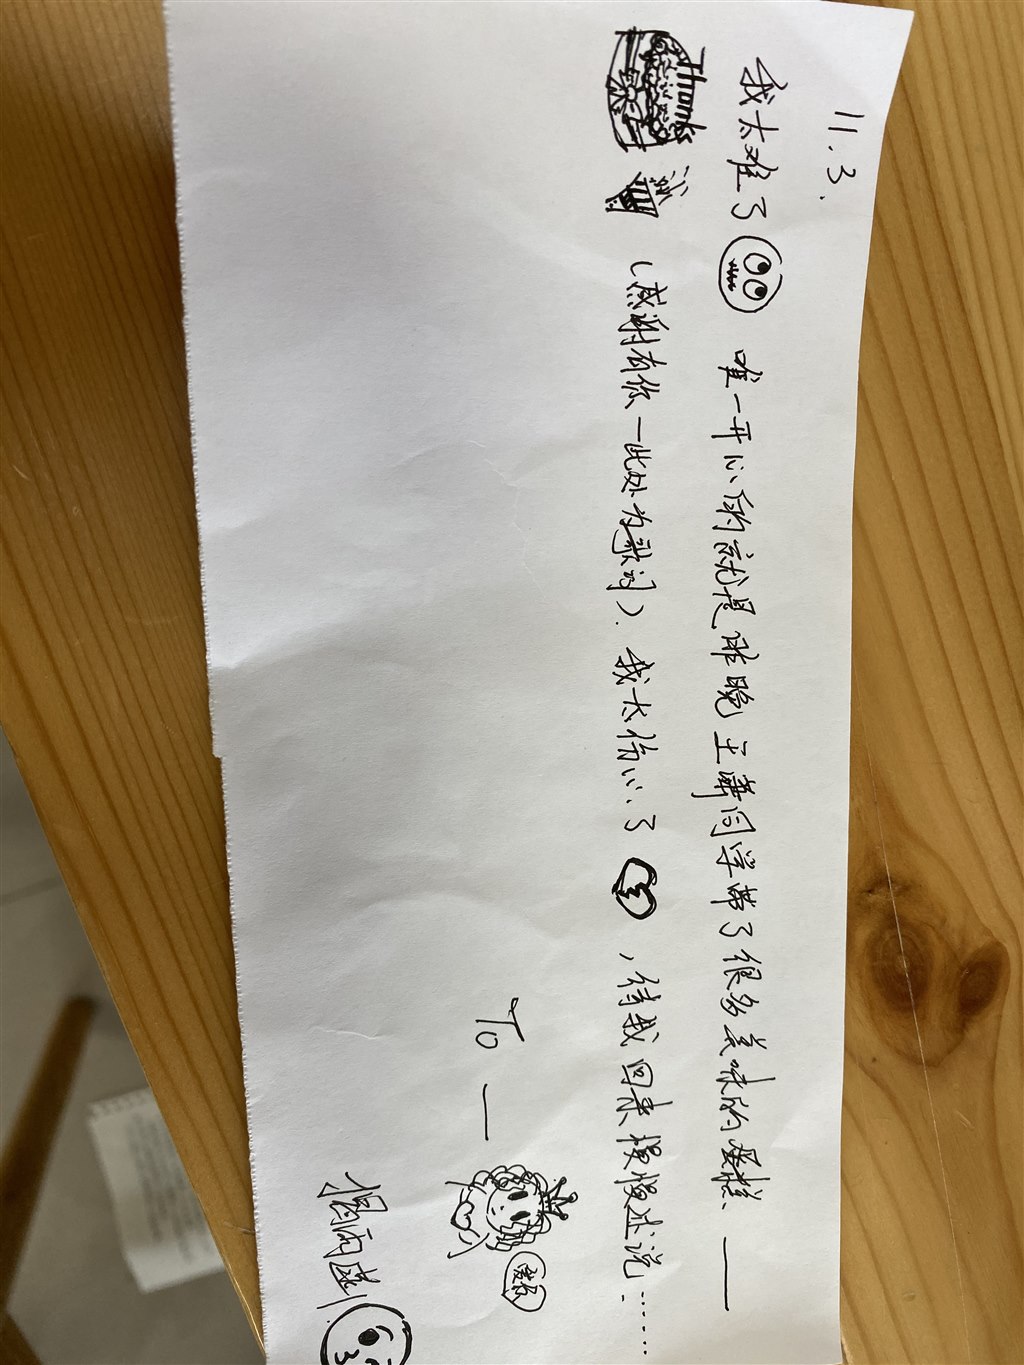 11.3.
我太难了 唯一开心的就是昨晚王 同学带了很多美味的蛋糕、——
Thanks (感谢有你—此处为歌词). 我太伤心了 ,待我回来慢慢述说……
TO —